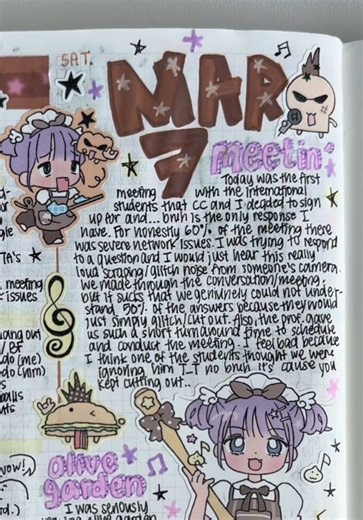 SAT.
MAR
7
meetin'
Today was the first
meeting with the international
students that CC and I decided to sign
up for and... bruh is the only response I
have. For honestly 60% of the meeting there
was severe network issues. I was trying to respond
to a question and I would just hear this really
loud scraping/glitch noise from someone's camera.
we made through the conversation/meeting,
but it sucks that we genuinely could not under-
stand 50% of the answers because they would
just simply glitch/cut out. Also, the prof. gave
us such a short turn around time to schedule
and conduct the meeting. I feel bad because
I think one of the students thought we were
ignoring him T-T no bruh it's cause you
kept cutting out..
TA's
meeting
issues
out
do (me)
do (him)
olive
garden
I was seriously
olive garden